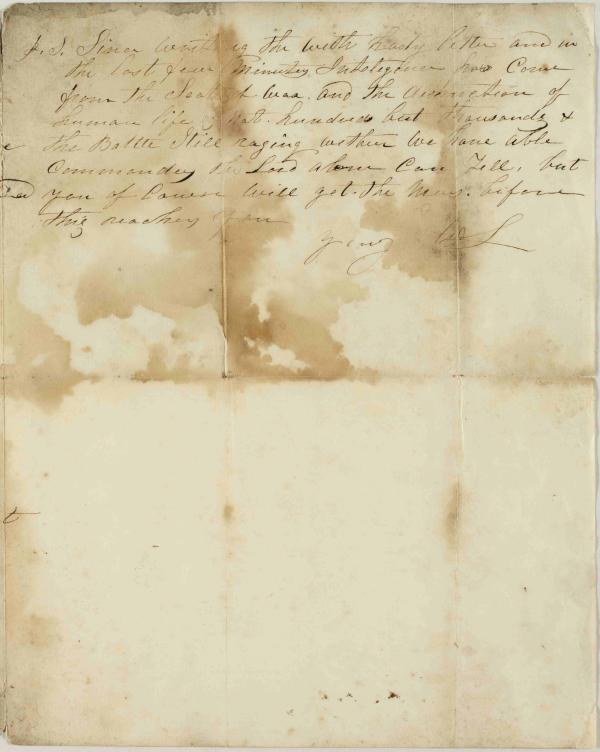 P.S. Since writing the with hasty letter and in
the last few Minutes Inteligence has Come
from the Seat of War. and the distruction of
human life is not hundreds but thousands &
the Battle Still raging wether We have able
Commanders the Lord alone Can Tell, but
you of Course will get the News before
this reaches you
yours W L
t